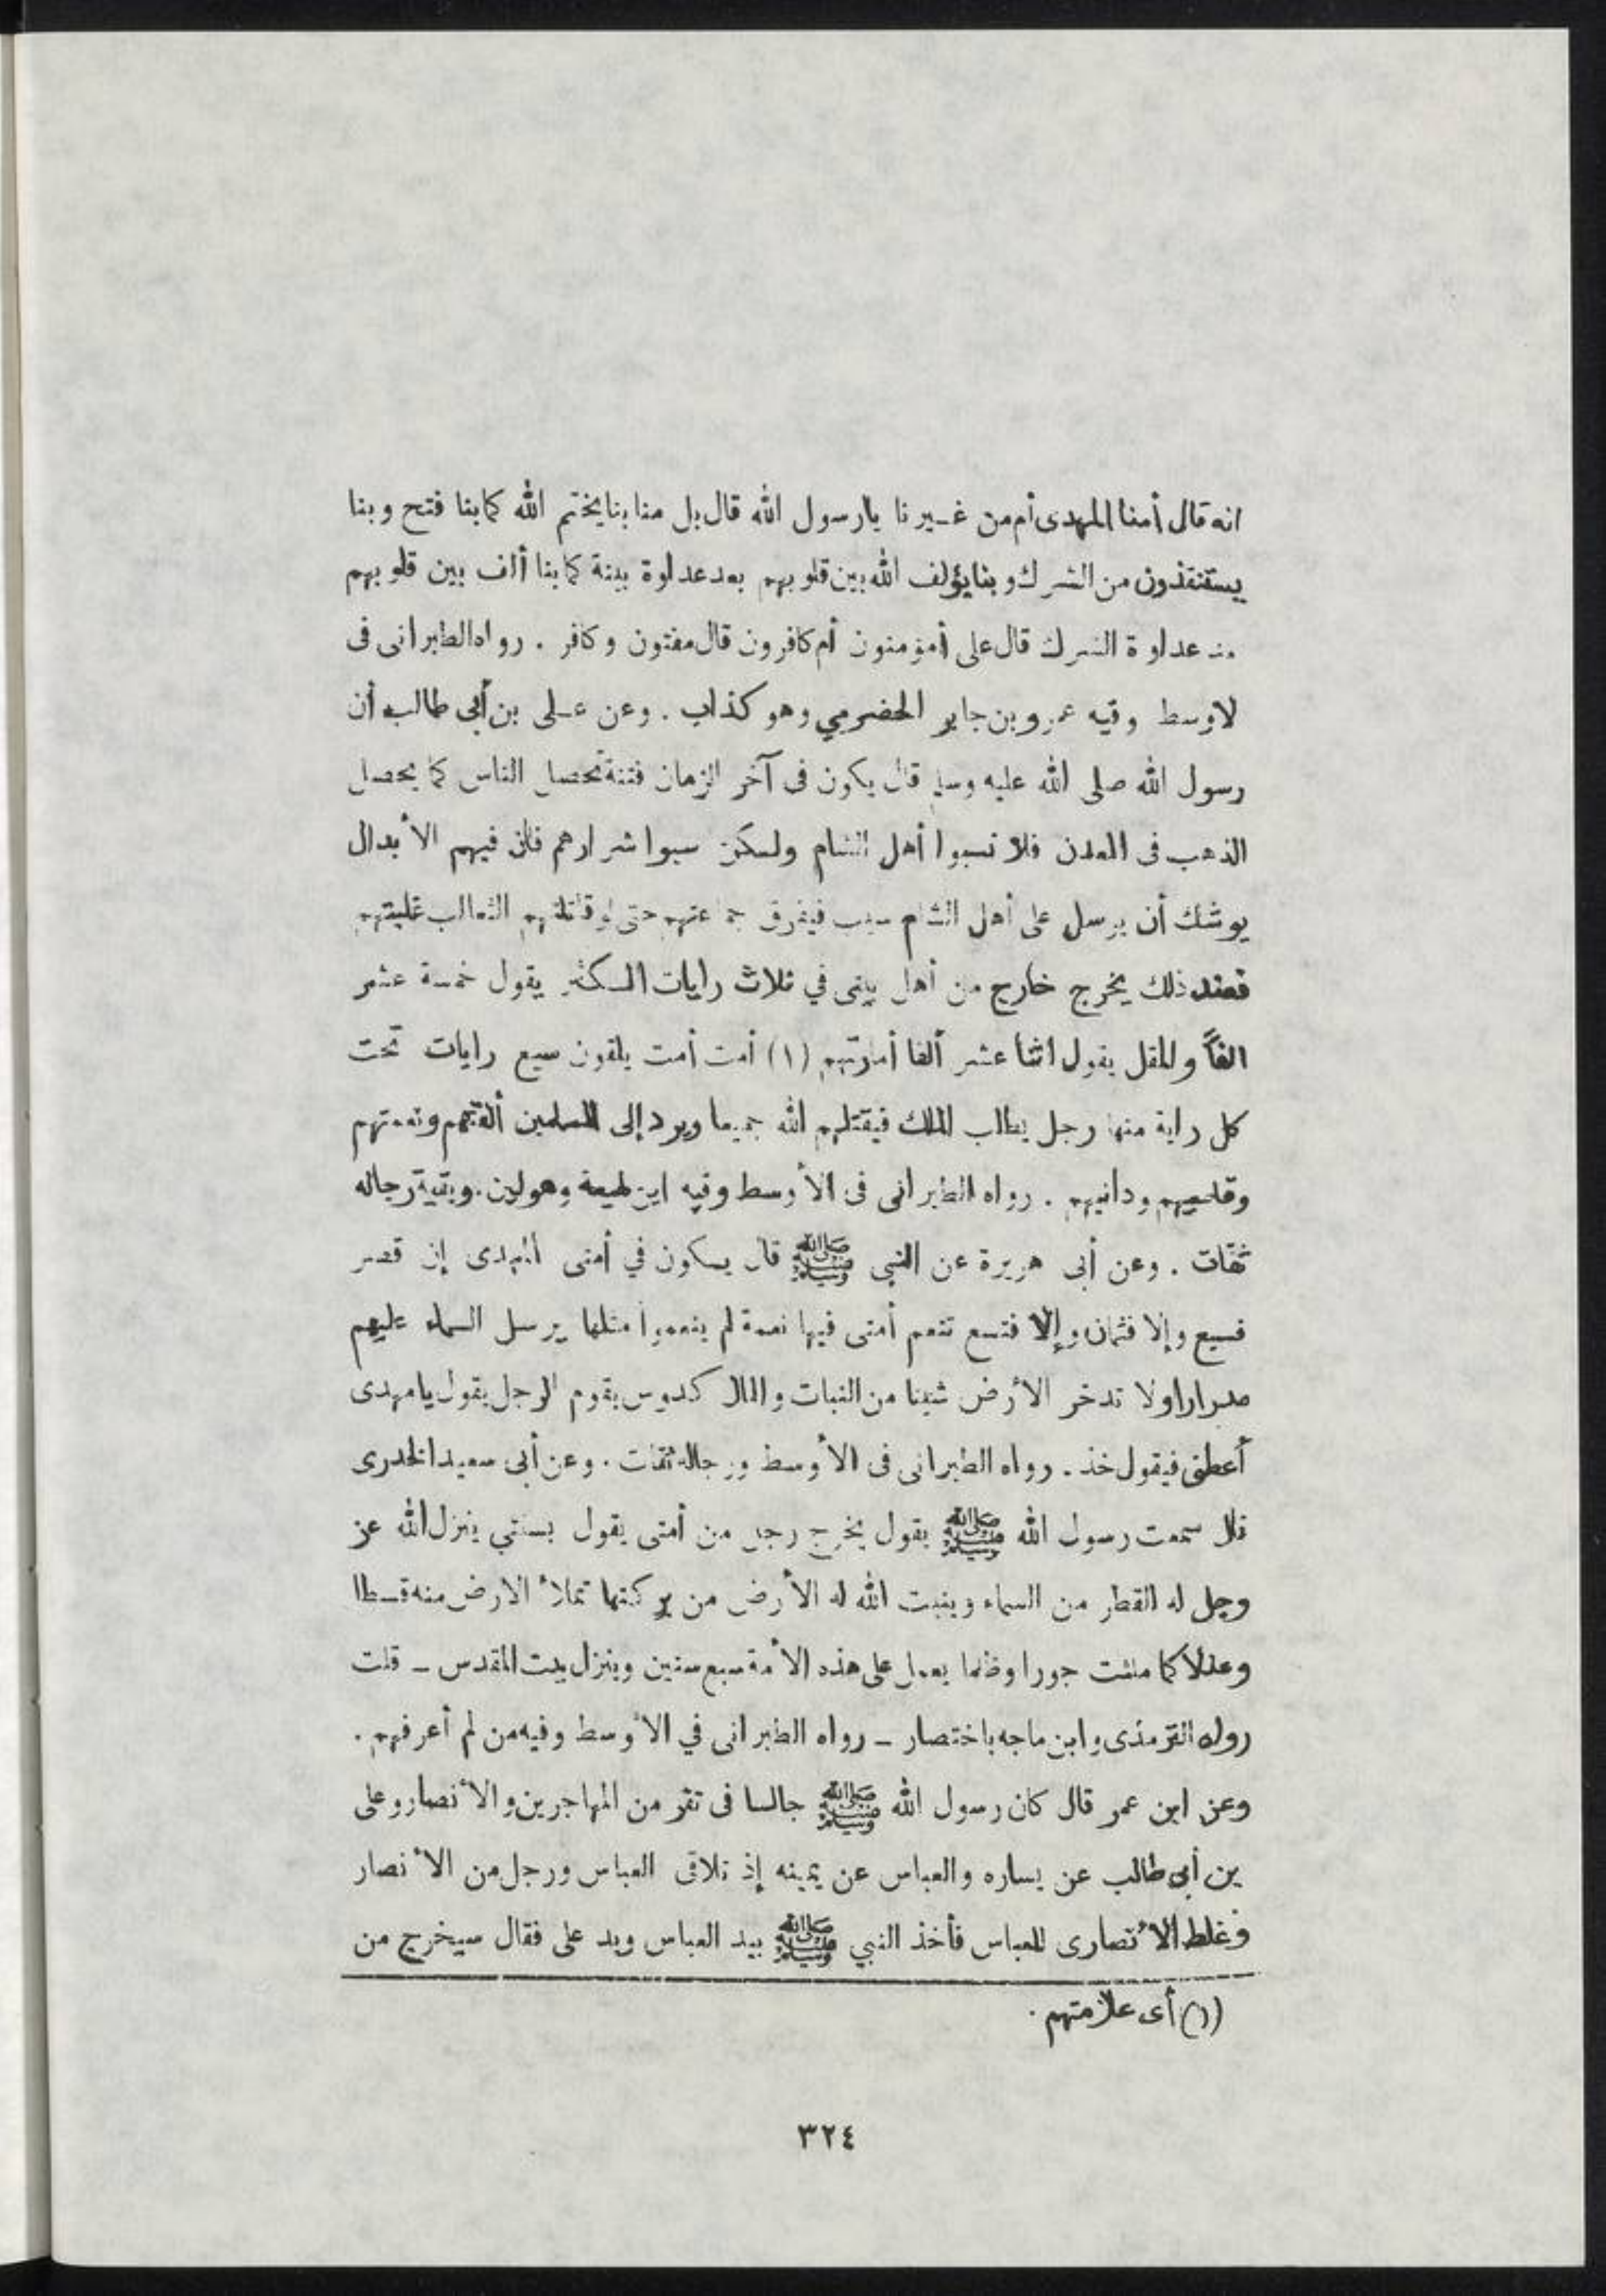 انه قال أمنا المهدى أم من غيرنا يارسول الله قال بل منا بنا يختم الله كما بنا فتح وبنا
يستنقذون من الشرك وبنا يؤلف الله بين قلوبهم بعد عداوة بينة كما بنا ألف بين قلوبهم
عداوة الشرك قال على أمؤمنون أم كافرون قال مفتون وكافر . رواه الطبرانى فى
لاوسط وفيه عمرو بن جابر الحضرمي وهو كذاب . وعن على بن أبى طالب أن
رسول الله صلى الله عليه وسلم قال يكون فى آخر الزمان فتنة تحصل الناس كما يحصل
الذهب فى المعدن فلا تسبوا أهل الشام ولكن سبوا شرارهم فان فيهم الأبدال
يوشك أن يرسل على أهل الشام سيب فيفرق جماعتهم حتى لو قاتلتهم الثعالب غلبتهم
فعند ذلك يخرج خارج من أهل بيتى في ثلاث رايات المكثر يقول خمسة عشر
الفاً والمقل يقول اثنا عشر ألفا أمارتهم (١) أمت أمت يلقون سبع رايات تحت
كل راية منها رجل يطلب الملك فيقتلهم الله جميعا ويرد إلى المسلمين ألفتهم ونعمتهم
وقاصيهم ودانيهم . رواه الطبرانى فى الأوسط وفيه ابن لهيعة وهو لين . وبقية رجاله
ثقات . وعن أبى هريرة عن النبى ﷺ قال يكون في أمتى المهدى إن قصر
فسبع وإلا فثمان وإلا فتسع تنعم أمتى فيها نعمة لم ينعموا مثلها يرسل السماء عليهم
مدرارا ولا تدخر الأرض شيئا من النبات والمال كدوس يقوم الرجل يقول يا مهدى
أعطنى فيقول خذ . رواه الطبرانى فى الأوسط ورجاله ثقات . وعن أبى سعيد الخدرى
قال سمعت رسول الله ﷺ يقول يخرج رجل من أمتى يقول بسنتي ينزل الله عز
وجل له القطر من السماء وينبت الله له الأرض من بركتها تملأ الارض منه قسطا
وعدلا كما ملئت جورا وظلما يعمل على هذه الأمة سبع سنين وينزل بيت المقدس ـ قلت
رواه الترمذى وابن ماجه باختصار ـ رواه الطبرانى في الأوسط وفيه من لم أعرفهم .
وعن ابن عمر قال كان رسول الله ﷺ جالسا فى نفر من المهاجرين والأنصار وعلى
بن أبى طالب عن يساره والعباس عن يمينه إذ تلاقى العباس ورجل من الأنصار
فغلظ الأنصارى للعباس فأخذ النبي ﷺ بيد العباس ويد على فقال سيخرج من
(١) أى علامتهم .
٣٢٤